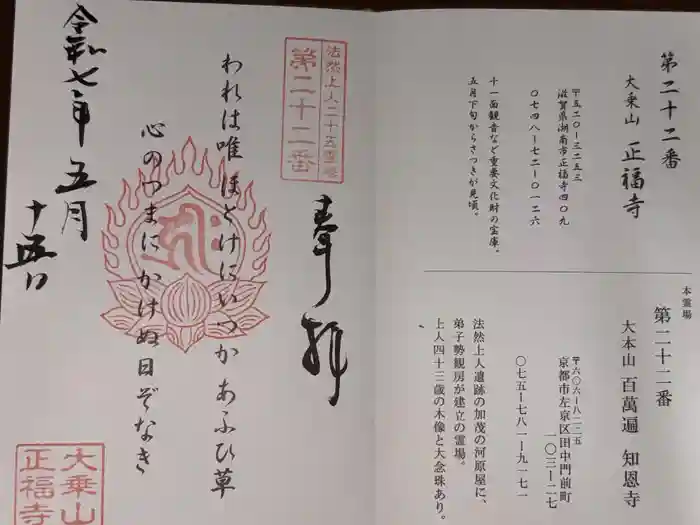 第二十二番
大乗山 正福寺
〒五二〇-三二五三
滋賀県湖南市正福寺四〇九
〇七四八-七二-〇一二六
十一面観音など重要文化財の宝庫。
五月下旬からさつきが見頃。
本霊場
第二十二番
大本山 百萬遍 知恩寺
〒六〇六-八二二五
京都市左京区田中門前町
一〇三-二七
〇七五-七八一-九一七一
法然上人遺跡の加茂の河原屋に、
弟子勢観房が建立の霊場。
上人四十三歳の木像と大念珠あり。
奉拝
法然上人二十五霊場
第二十二番
われは唯ほとけにいつかあふひ草
心のつまにかけぬ日ぞなき
令和七年五月
十五日
大乗山
正福寺